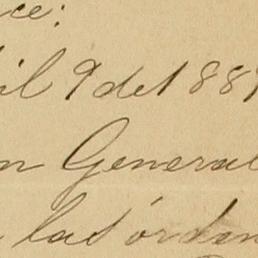 ce:
il 9 de 188
n General
las órden